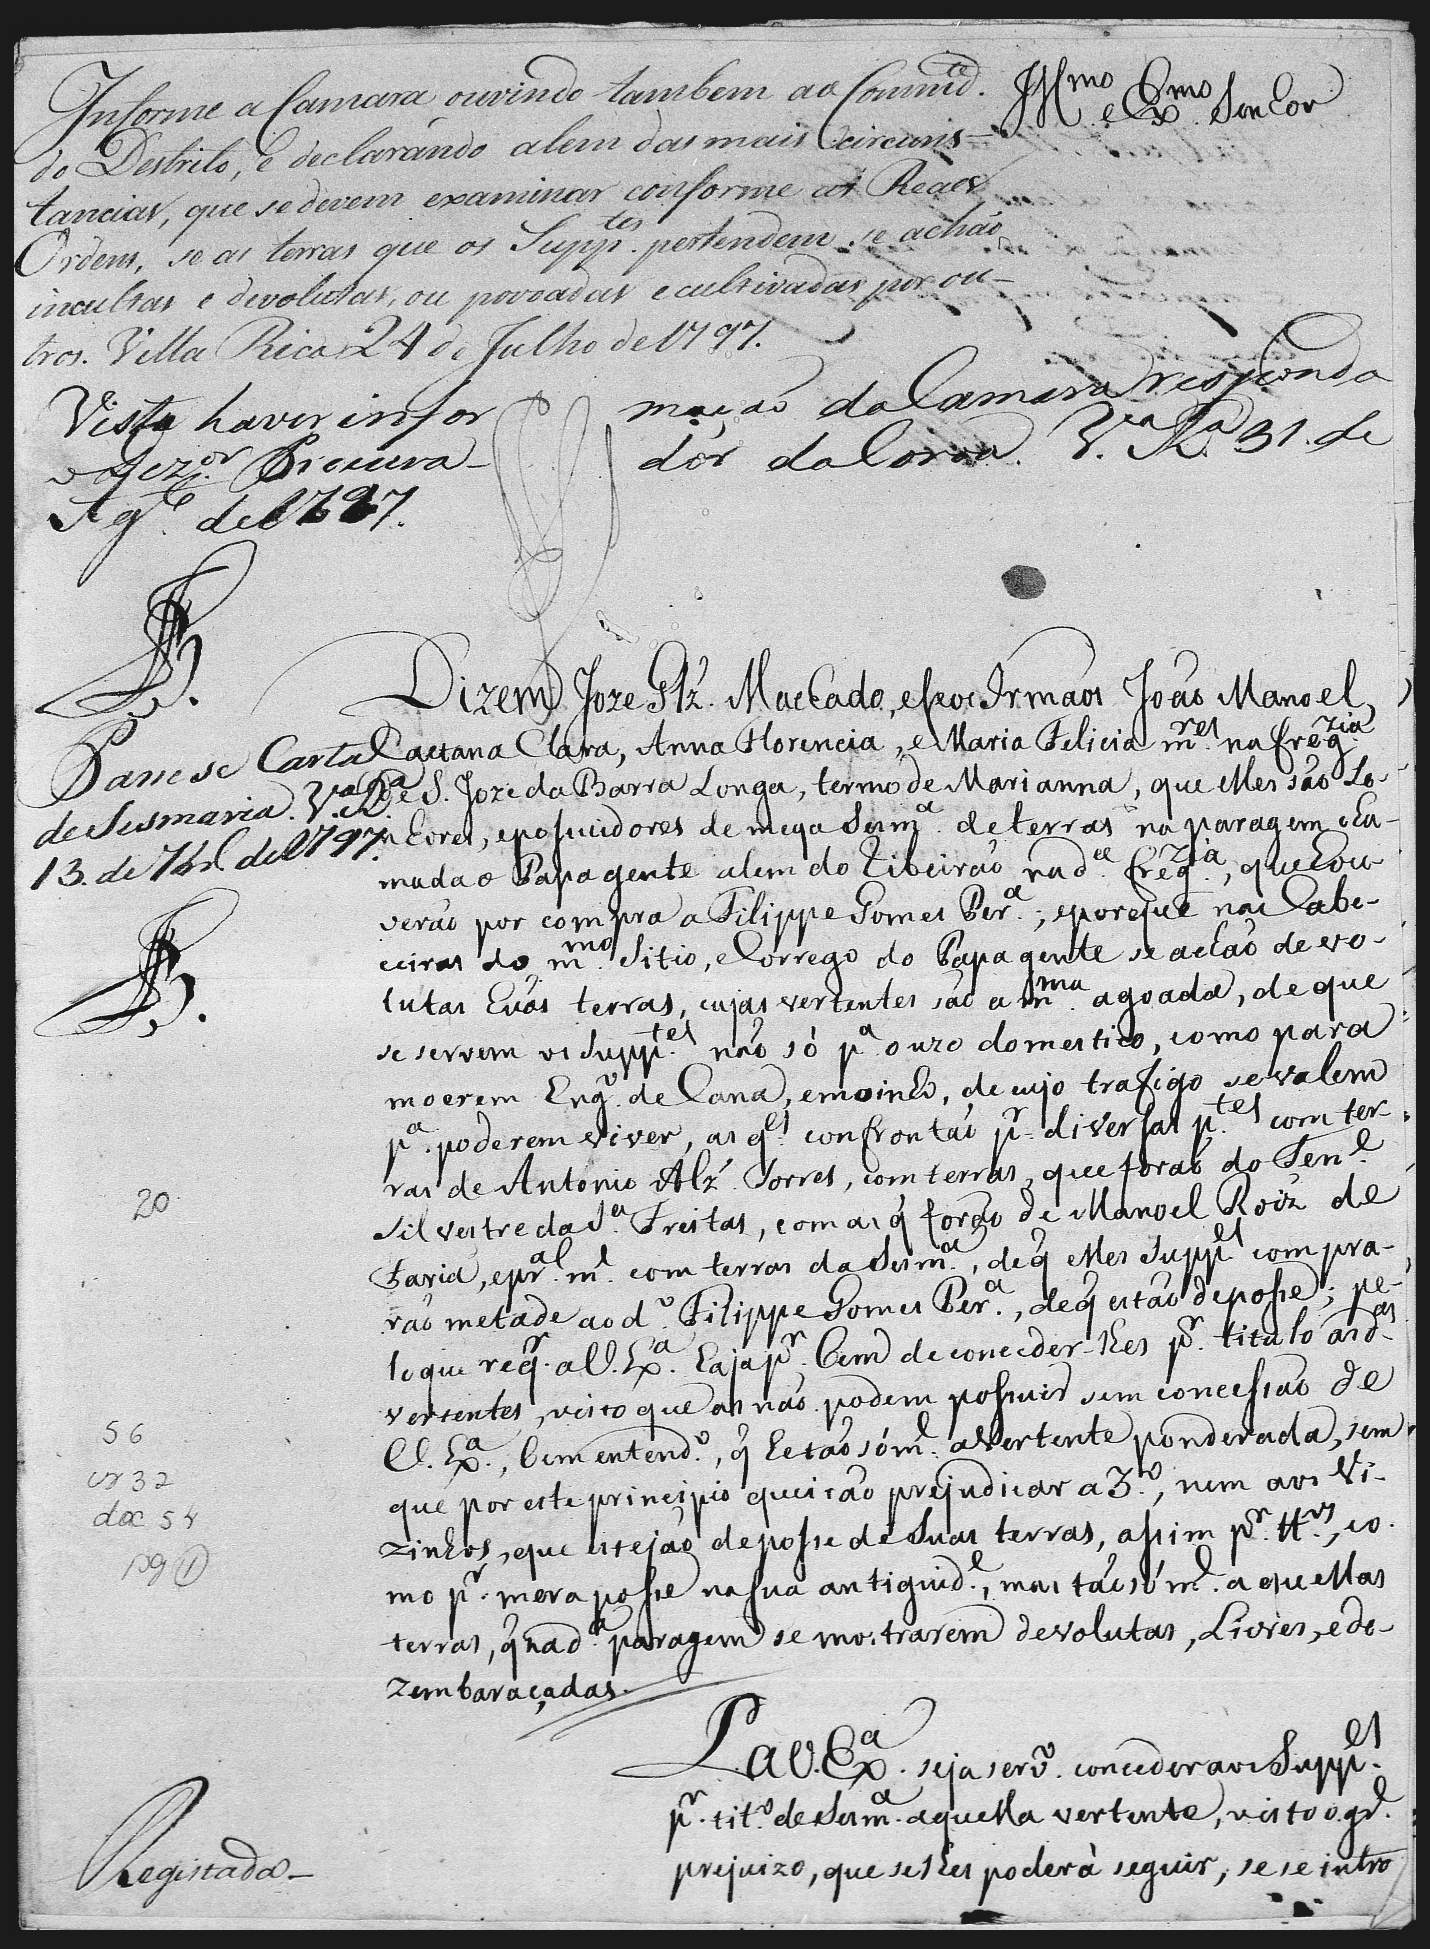 Informe a Camara ouvindo tambem ao Commd.te
do Destrito, e declarando alem das mais circuns-
tancias, que se devem examinar conforme as Reaes
Ordens, se as terras que os Supp.tes pertendem, se achão
incultas e devolutas, ou povoadas e cultivadas por ou-
tros. Villa Rica 24 de Julho de 1797.
Ill.mo e Ex.mo Senhor
Vista haver infor mação da Camara responda
o Dez.or Procura- dor da Coroa. V.a R.a 31. de
Ag.to de 1797.
Passese Carta
de Sesmaria. V.a R.a
13. de 7br.o de 1797.
Dizem Joze Glz. Machado, e seos Irmãos João Manoel,
Caetana Clara, Anna Florencia, e Maria Felicia m.res na freg.zia
de S. Joze da Barra Longa, termo de Marianna, que elles são Se-
nhores, e possuidores de meya Sesm.a de terras na paragem cha-
mada o Papagente alem do Ribeirão na d.a freg.zia, que hou-
verão por compra a Filippe Gomes Per.a; e porque nas Cabe-
ceiras do m.mo Sitio, e Corrego do Papagente se achão devo-
lutas huas terras, cujas vertentes são a m.ma agoada, de que
se servem os Supp.tes não só p.a o uzo domestico, como para
moerem Eng.o de Cana, e moinho, de cujo trafigo se valem
p.a poderem viver, as q.es confrontão p.r diversas p.tes com ter-
ras de Antonio Alz. Torres, com terras, que forão do Ten.e
Silvestre da S.a Freitas, com as q forão de Manoel Roiz de
Faria, e pr.al m.e com terras da Sesm.a, de q elles Supp.es compra-
rão metade ao d.o Filippe Gomes Per.a, de q estão de posse; pe-
lo que req.r a V. Ex.a haja p.r bem de conceder-lhes p.r titulo as d.as
vertentes, visto que as não podem possuir sem concessão de
V. Ex.a, bem entend.o, q he tão sóm.e a vertente ponderada, sem
que por este principio queirão prejudicar a 3.o, nem aos Vi-
zinhos, que estejão de posse de suas terras, assim p.r tt.os, co-
mo p.r mera posse na sua antiguid.e, mas tão sóm.e aquellas
terras, q na d.a paragem se mostrarem devolutas, Livres, e de-
zembaraçadas.
P. a V. Ex.a seja serv.o conceder aos Supp.es
p.r tit.o de Sesm.a aquella vertente, visto o g.de
prejuizo, que se lhes poderá seguir, se se intro
20
56
cx 32
doc 54
pg 1
Registada